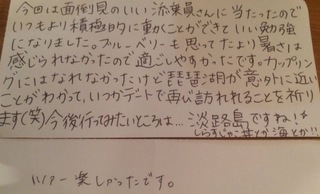 今回は面倒見のいい派乗員さんに当たったので
いつもより積極的に動くことができとい勉強
になりました。ブルーベリーも思ってたより暑さは
感じられなかったので過ごしやすかったです。カップリン
グにはなれなかったけど琵琶湖が意外に近い
ことがわかって、いつかデートで再び訪れれることを祈り
ます(笑)今後行ってみたいところは…淡路島ですね!
しらすじゃこ丼とか海とか!!
楽しかったです。